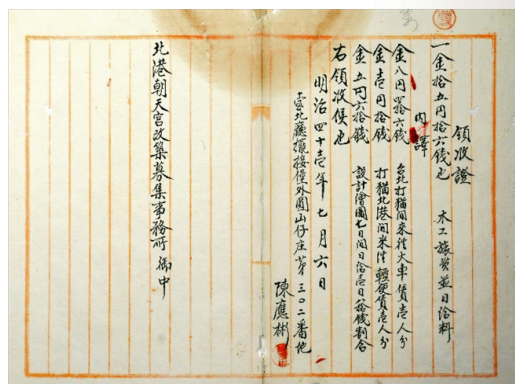 領收證
一金拾五円拾六錢也 木工旅費並日給料
內譯
金八円四拾六錢 台北打猫間来往火車賃壱人分
金壱円拾錢 打猫北港間来往輕便賃壱人分
金五円六拾錢 設計繪圖七日間日給壱日八拾錢割合
右領收候也
明治四十壱年七月六日
臺北廳擺接堡外圓山仔庄第三〇二番地
陳應彬
北港朝天宮改築募集事務所 御中